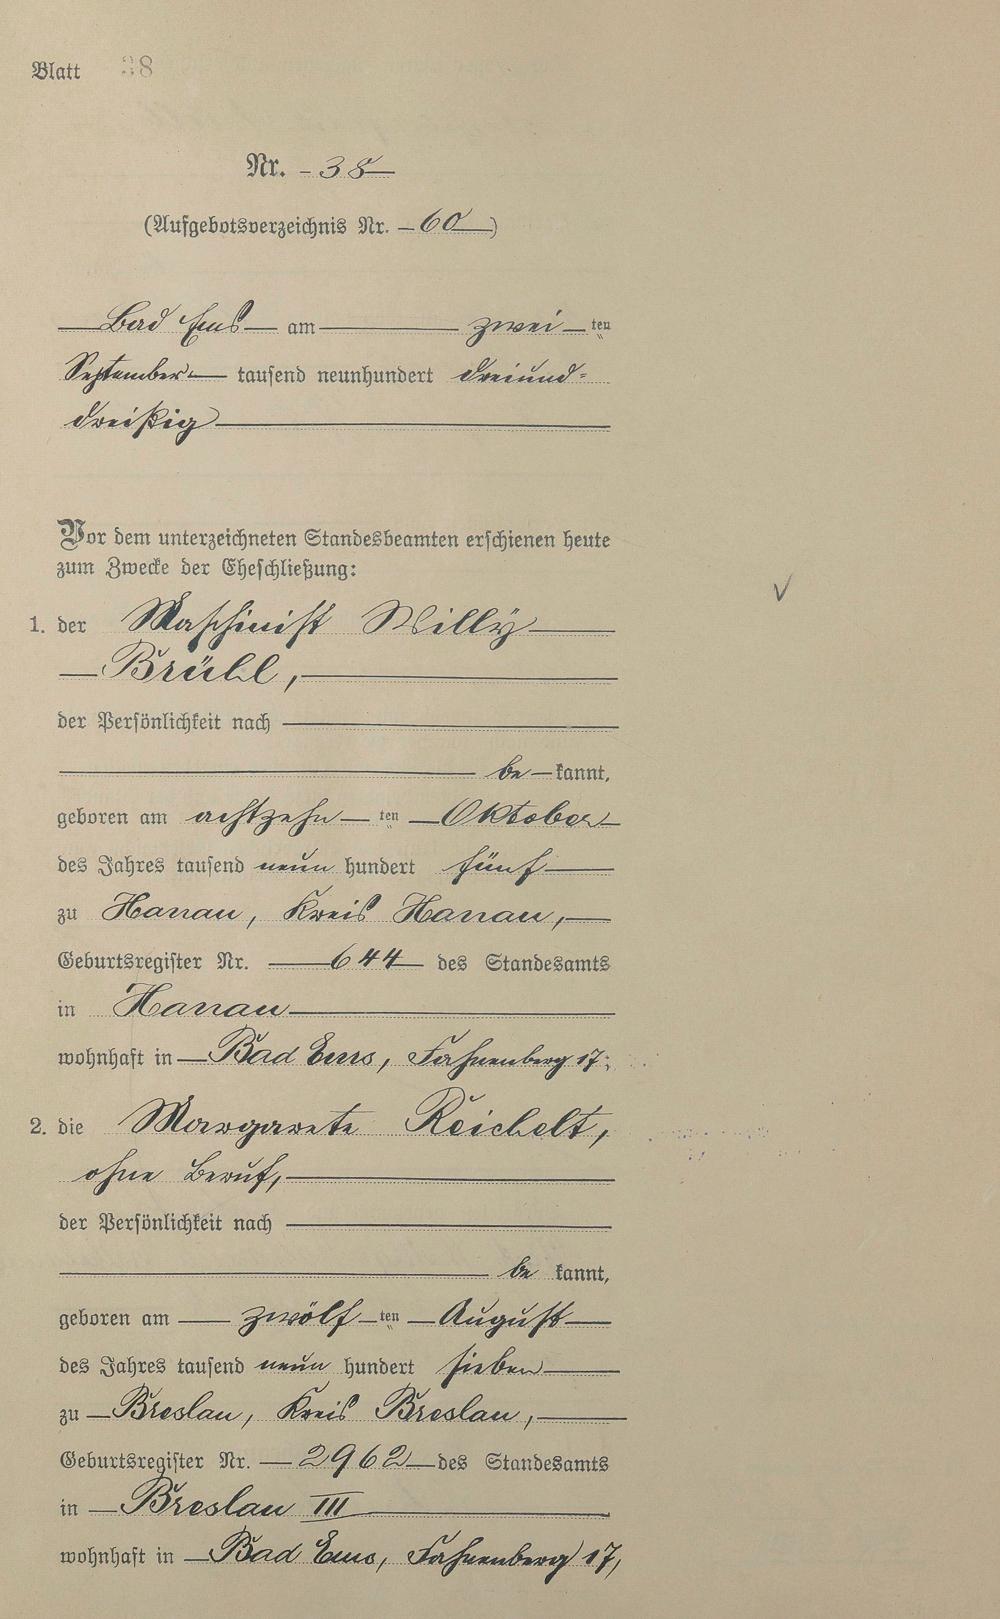 Blatt 38
Nr. 38
(Aufgebotsverzeichnis Nr. 60)
Bad Ems am zwei ten
September tausend neunhundert dreiund-
dreißig
Vor dem unterzeichneten Standesbeamten erschienen heute
zum Zwecke der Eheschließung:
1. der Maschinist Willy
Brühl,
der Persönlichkeit nach
be kannt,
geboren am achtzehn ten Oktober
des Jahres tausend neun hundert fünf
zu Hanau, Kreis Hanau,
Geburtsregister Nr. 644 des Standesamts
in Hanau
wohnhaft in Bad Ems, Fahnenberg 17;
2. die Margarete Reichelt,
ohne Beruf,
der Persönlichkeit nach
be kannt,
geboren am zwölf ten August
des Jahres tausend neun hundert sieben
zu Breslau, Kreis Breslau,
Geburtsregister Nr. 2962 des Standesamts
in Breslau III
wohnhaft in Bad Ems, Fahnenberg 17,